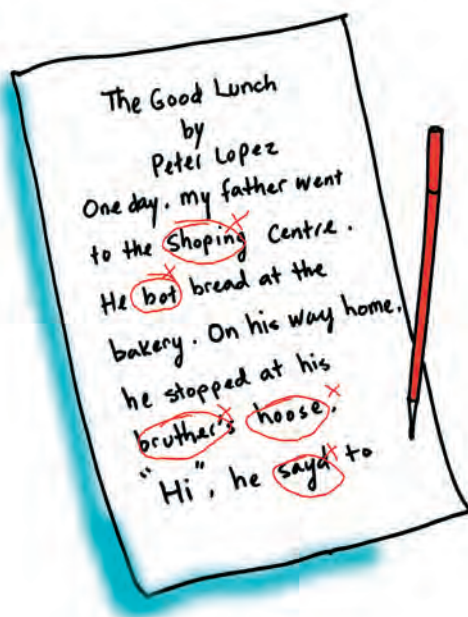 The Good Lunch
by
Peter Lopez
One day. my father went
to the Shoping Centre.
He bot bread at the
bakery. On his way home.
he stopped at his
bruther's hoose.
"Hi", he sayd to